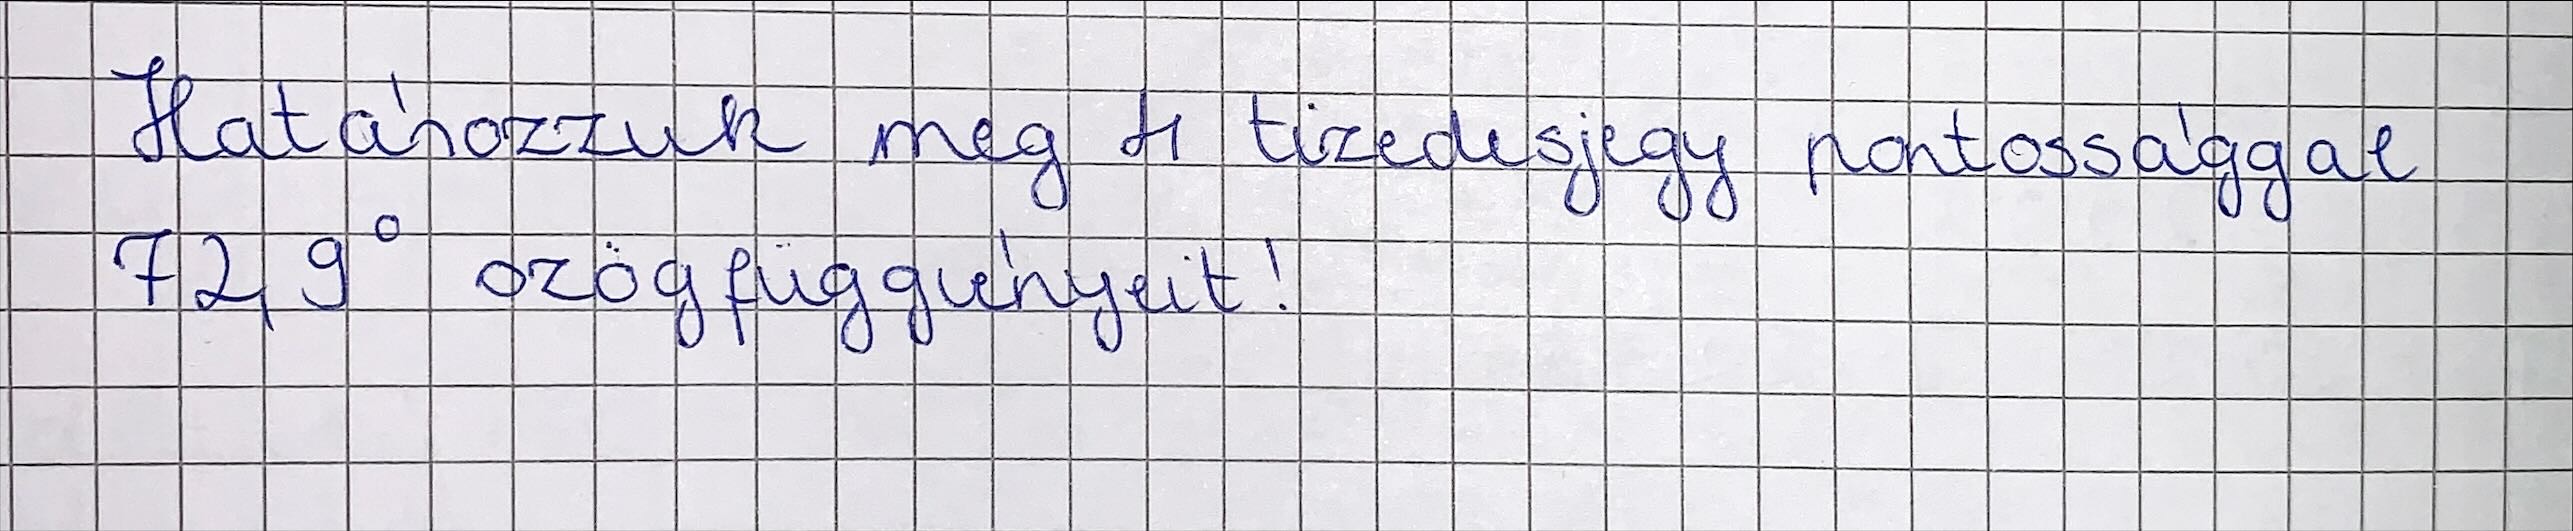 Határozzuk meg 4 tizedesjegy pontossággal
72,9° szögfüggvényeit!